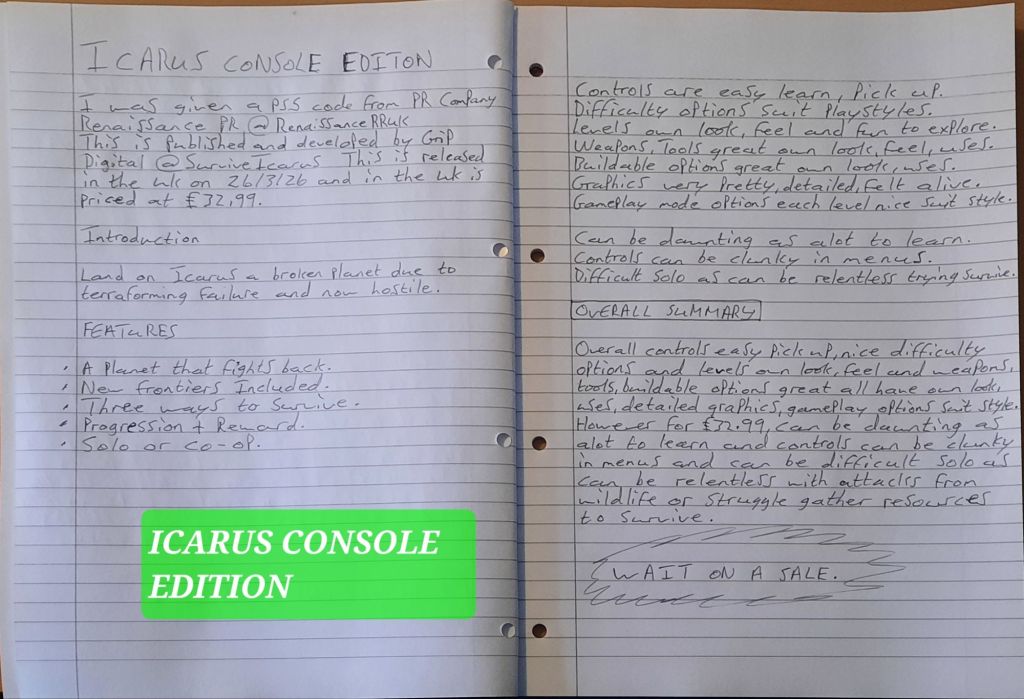 ICARUS CONSOLE EDITON
I was given a PS5 code from PR Company
Renaissance PR @RenaissancePRuk
This is published and developed by Grip
Digital @SurviveIcarus This is released
in the uk on 26/3/26 and in the uk is
priced at £32,99.
Introduction
Land on Icarus a broken planet due to
terraforming failure and now hostile.
FEATURES
• A Planet that fights back.
• New frontiers Included.
• Three ways to Survive.
• Progression + Reward.
• Solo or co-op.
ICARUS CONSOLE
EDITION
Controls are easy learn, Pick up.
Difficulty options suit Playstyles.
Levels own look, feel and fun to explore.
Weapons, Tools great own look, feel, uses.
Buildable options great own look, uses.
Graphics very Pretty, detailed, felt alive.
Gameplay mode options each level nice suit style.
Can be daunting as alot to learn.
Controls can be clunky in menus.
Difficult Solo as can be relentless trying survive.
OVERALL SUMMARY
Overall controls easy Pick up, nice difficulty
options and levels own look, feel and weapons,
tools, buildable options great all have own look,
uses, detailed graphics, gameplay options suit style.
However for £32.99, can be daunting as
alot to learn and controls can be clunky
in menus and can be difficult solo as
can be relentless with attacks from
wildlife or struggle gather resources
to survive.
WAIT ON A SALE.